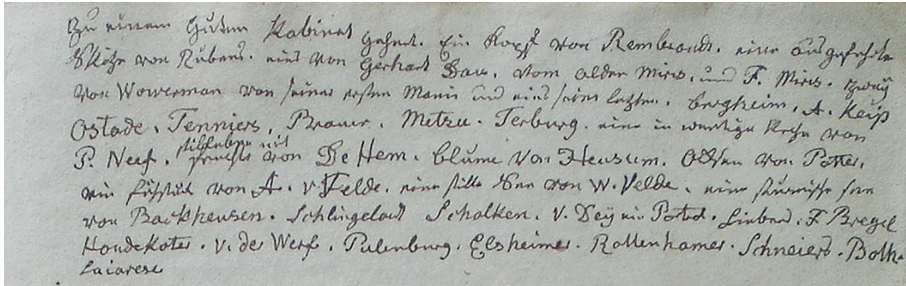 Zu einem guten Kabinet gehört. Ein Kopf von Rembrandt. eine ausgeführte
Skitze von Rubens. eins von Gerhard Dau. vom alden Miris. und F. Miris. zwey
von Wowerman von seiner ersten Manir und eins seiner letzten. Bergheim. A. Keip
Ostade. Tenniers. Brauer. Metzu. Terburg. eine in wendige Kirche von
P. Neef. stilleben mit früchte von De Hem. blume von Heusum. Ochsen von Potter.
ein von A. v. Felde. eine stille See von W. Velde. eine stürmische see
von Backheusen. Schlingeland Schalken. v. Potes. F. Bregel
Hondekoter. v. der Werf. Pulenburg. Elsheimer. Rottenhamer. Schneiers. Both.
Lairesse